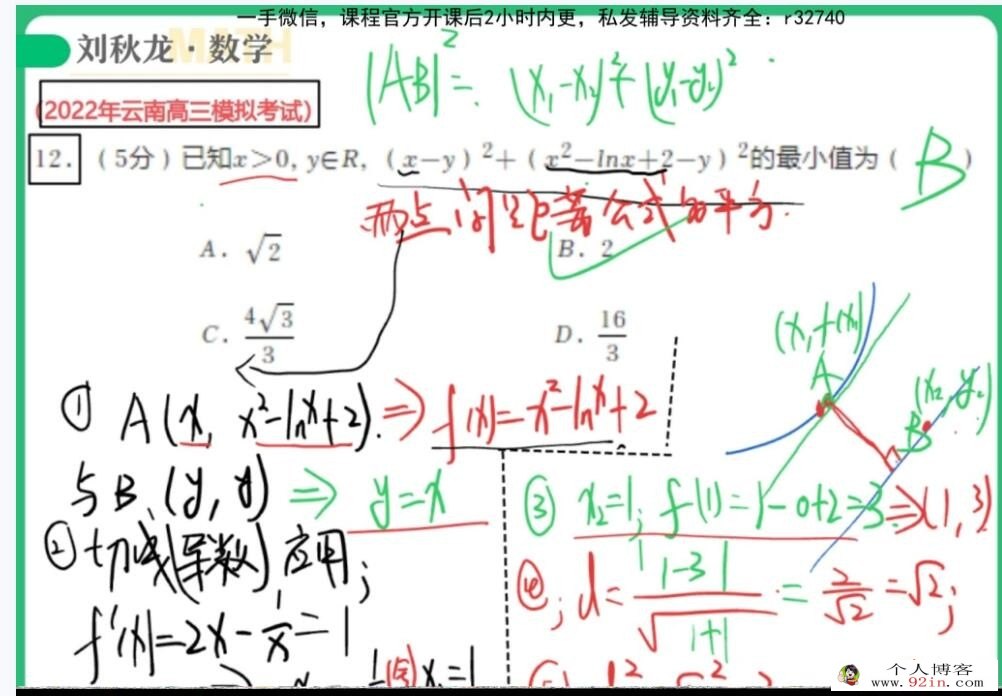 一手微信，课程官方开课后2小时内更，私发辅导资料齐全：r32740
刘秋龙·数学
MATH
|AB|²=. (x₁-x₂)²+(y₁-y₂)²
(2022年云南高三模拟考试)
12. （5分）已知x>0, y∈R, (x-y)²+(x²-lnx+2-y)²的最小值为（ B ）
两点间距离公式的平方.
A. √2
B. 2
C. 4√3/3
D. 16/3
① A(x, x²-lnx+2). ⇒ f(x)=x²-lnx+2
与B.(y, y) ⇒ y=x
② 切线(导数)应用;
f'(x)=2x-1/x=1
(x₁, f(x₁))
A
(x₂, y₂)
B
③ x₂=1; f(1)=1-0+2=3. ⇒(1, 3)
④; d=|1-3|/√1+1=2/√2=√2;
x₁=1
个人博客
www.92in.com